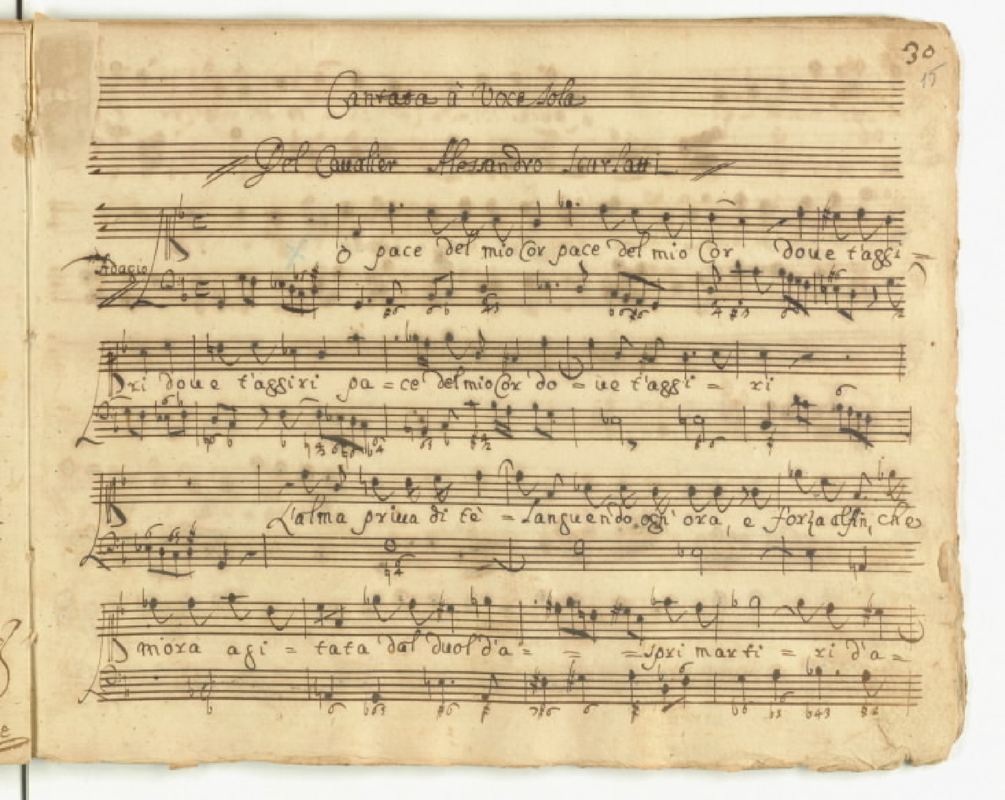 30
15
Cantata à Voce sola
Del Cavalier Alessandro Scarlatti
O pace del mio Cor pace del mio Cor doue t'aggi =
Adagio
ri doue t'aggiri pa = ce del mio Cor do = ue t'aggi = ri
L'alma priua di tè = languendo ogn' ora, e forza alfin, che
mora agi = tata dal duol d'a = = = spri marti = ri d'a =